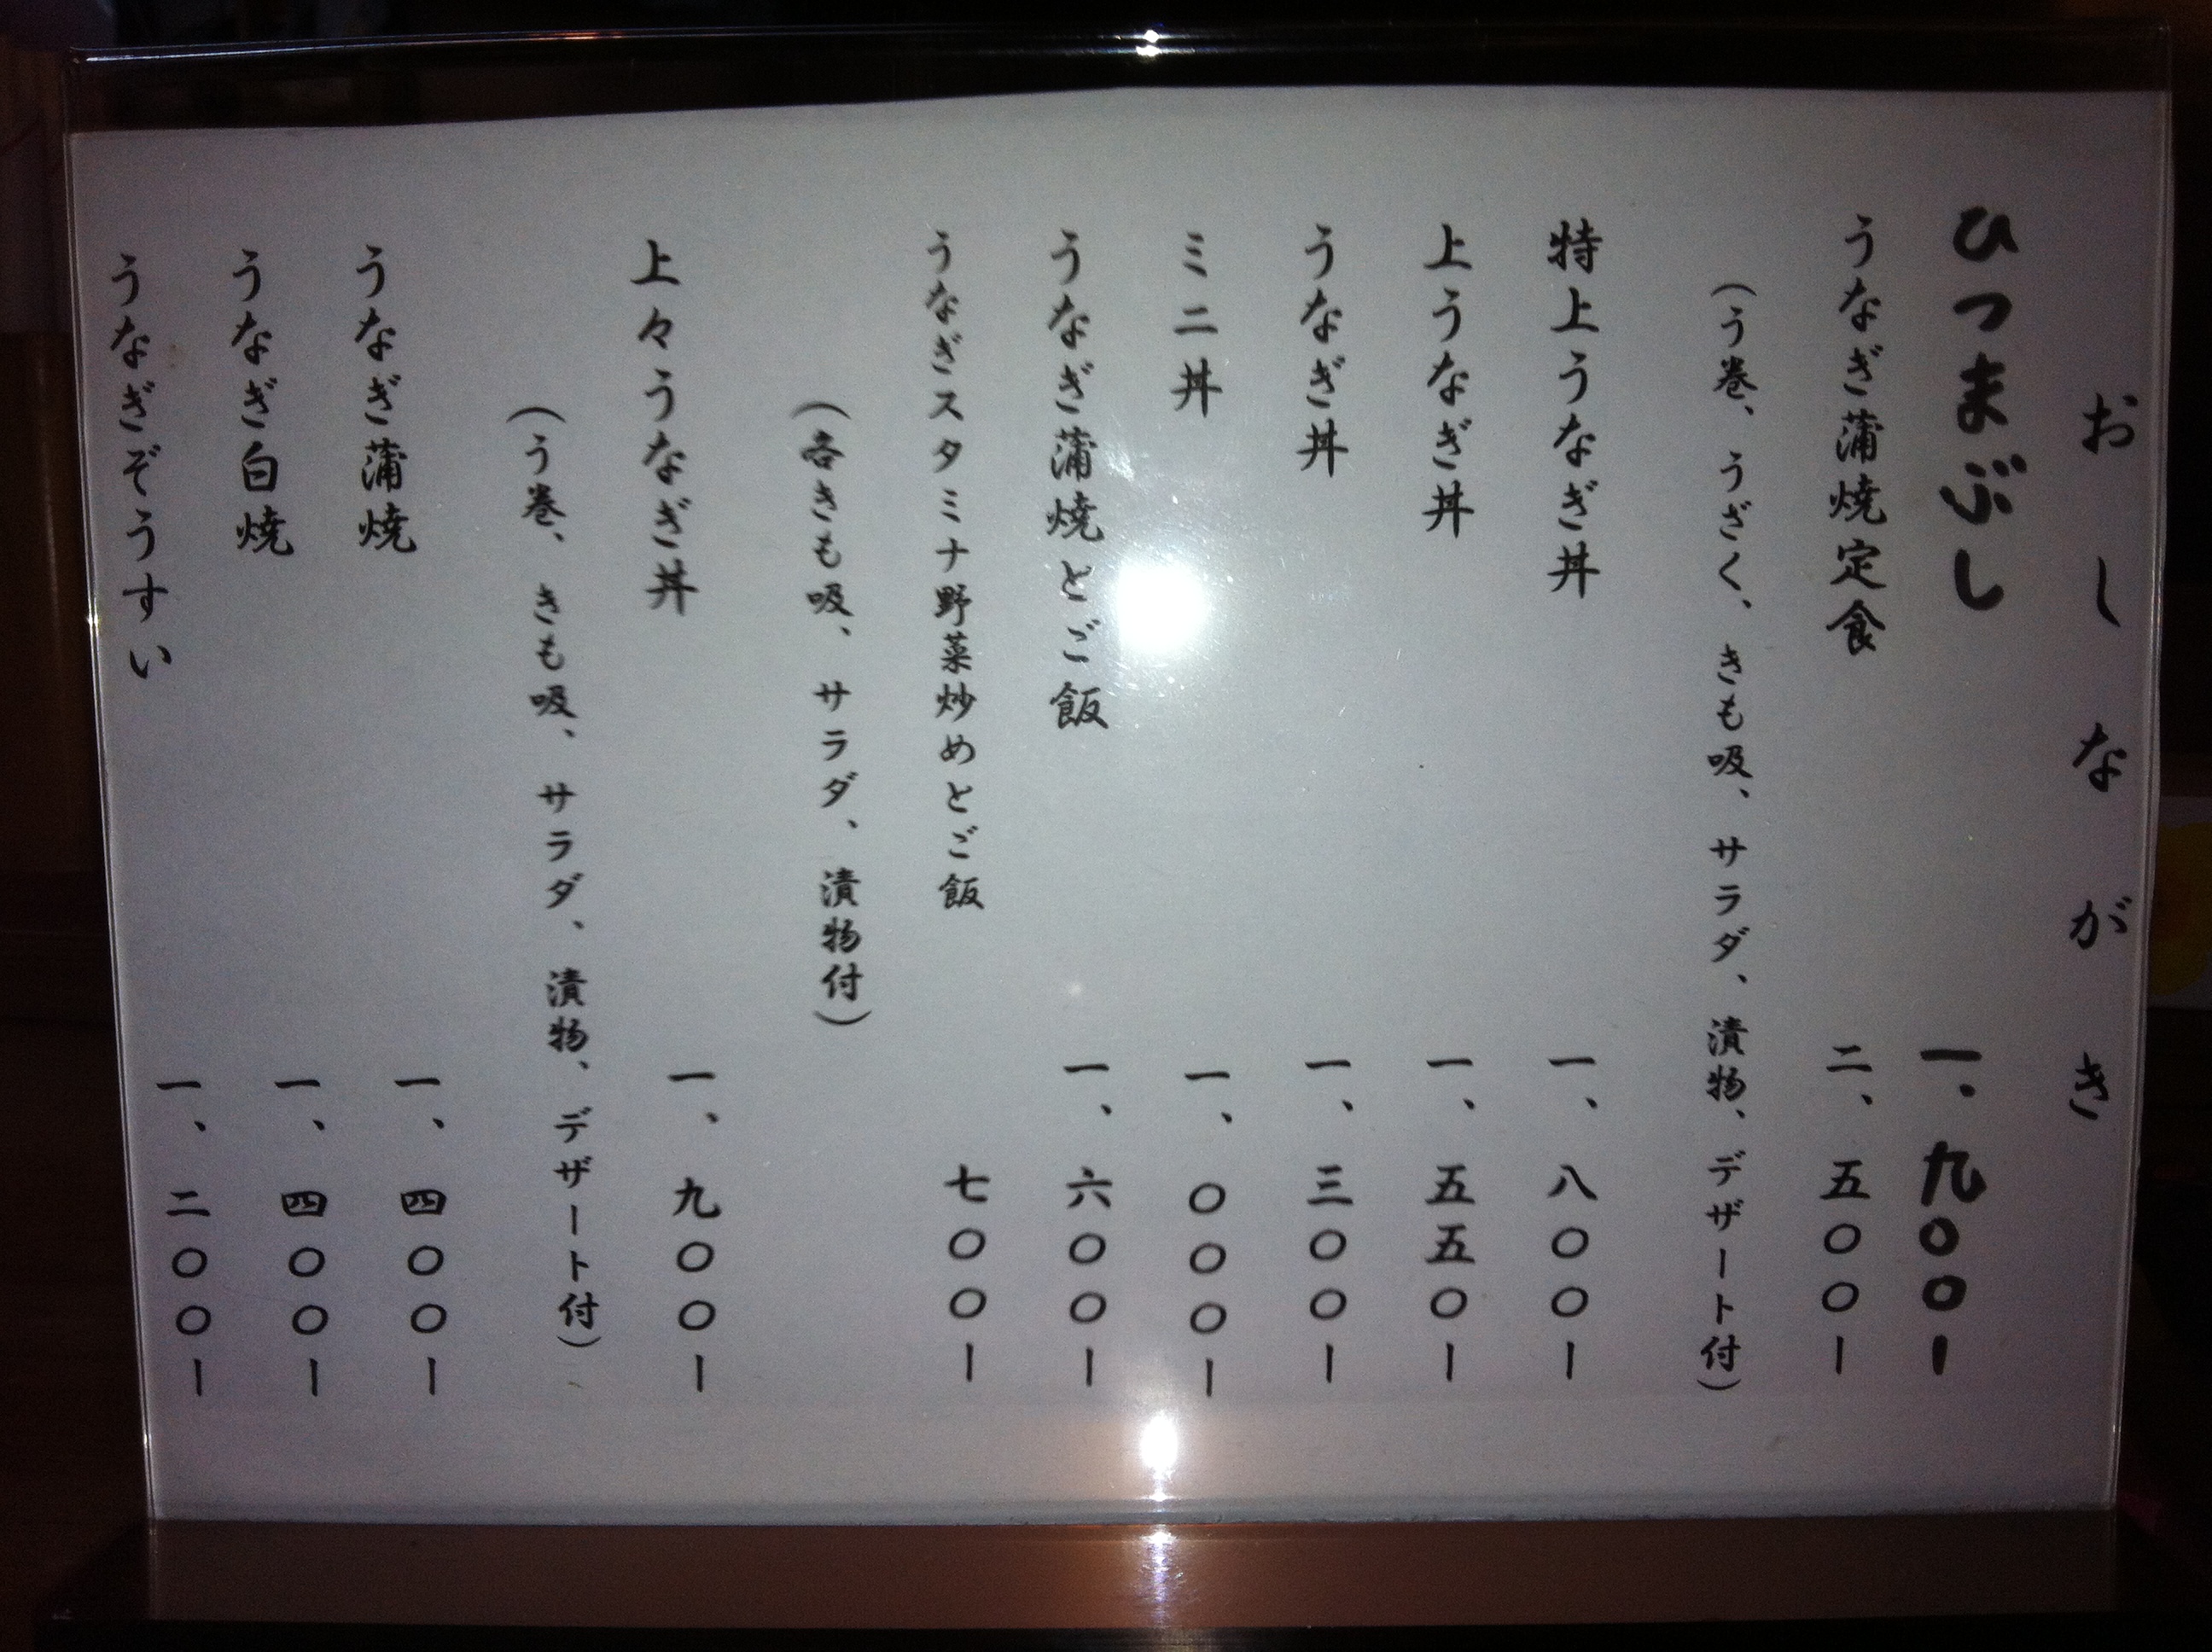 おしながき
ひつまぶし 一、九〇〇ー
うなぎ蒲焼定食 二、五〇〇ー
（う巻、うざく、きも吸、サラダ、漬物、デザート付）
特上うなぎ丼 一、八〇〇ー
上うなぎ丼 一、五五〇ー
うなぎ丼 一、三〇〇ー
ミニ丼 一、〇〇〇ー
うなぎ蒲焼とご飯 一、六〇〇ー
うなぎスタミナ野菜炒めとご飯 七〇〇ー
（各きも吸、サラダ、漬物付）
上々うなぎ丼 一、九〇〇ー
（う巻、きも吸、サラダ、漬物、デザート付）
うなぎ蒲焼 一、四〇〇ー
うなぎ白焼 一、四〇〇ー
うなぎぞうすい 一、二〇〇ー